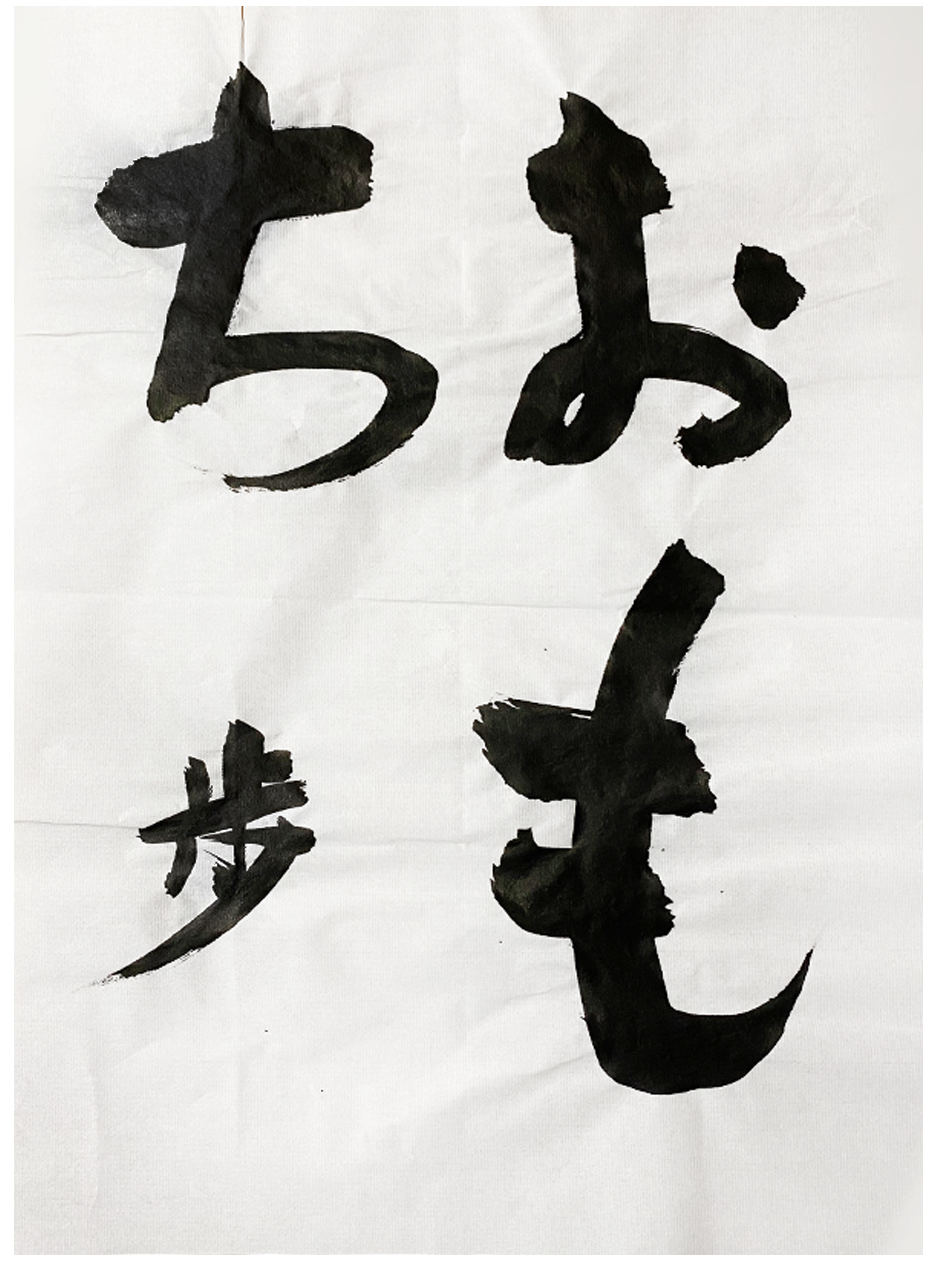 おも
ち歩